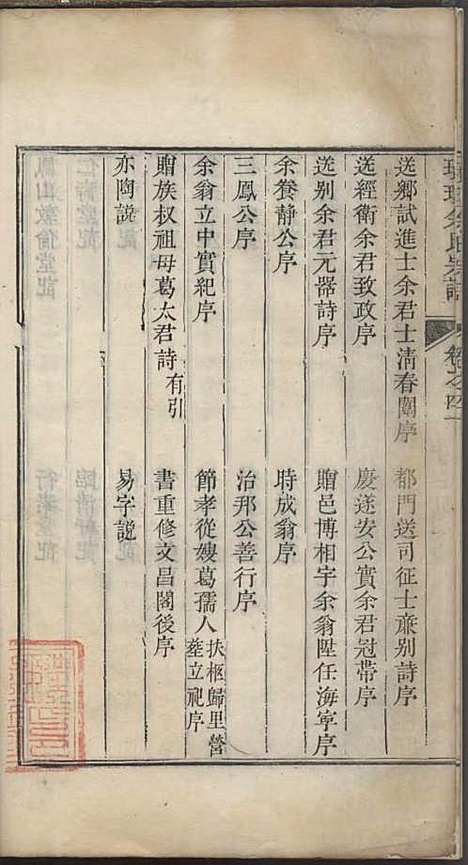 余氏宗譜
卷之四
送鄉試進士余君士清春闈序
都門送司征士亷别詩序
送經衛余君致政序
慶遂安公實余君冠帶序
送别余君元器詩序
贈邑博相宇余翁陞任海寧序
余養靜公序
時成翁序
三鳳公序
治邦公善行序
余翁立中實紀序
節孝從嫂葛孺人扶柩歸里營塟立祀序
贈族叔祖母葛太君詩有引
書重修文昌閣後序
亦陶說
易字說